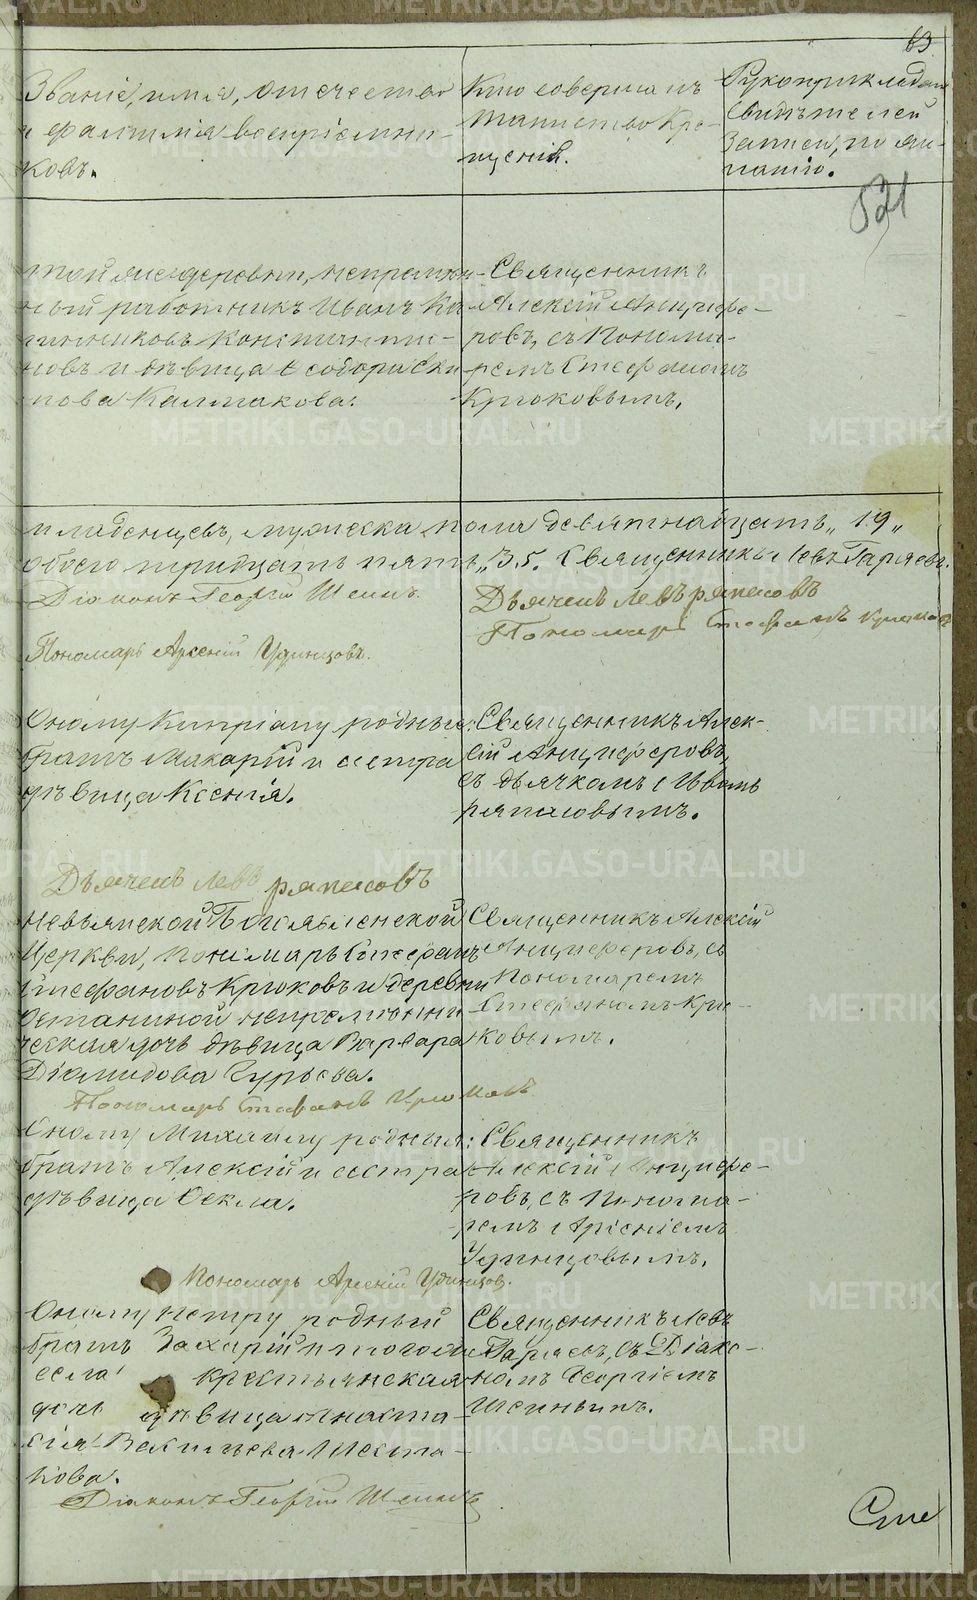 63
Званіе, имя, отечество
и фамилія воспріемни-
ковъ.
Кто совершалъ
таинство Кре-
щенія.
Рукоприклад
свидѣтелей
записи, по же-
ланію.
521
той же деревни, непремѣн-
ный работникъ Иванъ Ка
линниковъ Константи-
новъ и дѣвица Ѳеодора
пова Калмакова.
Священникъ
Алексій Анцифе-
ровъ, съ Понома-
ремъ Стефаномъ
Крюковымъ.
младенцевъ, мужеска пола девятнадцать „19„
обоего тридцать пять „35. Священникъ Левъ Гаряевъ.
Діаконъ Георгій Шеинъ.
Дьячекъ Левъ Ряпасовъ
Пономарь Стефанъ Крюковъ
Пономарь Арсеній Удинцовъ.
Оному Кипріану родные:
братъ Макарій и сестра
дѣвица Ксенія.
Священникъ Алек-
сій Анциферовъ,
съ дьячкомъ Львомъ
Ряпасовымъ.
Дьячекъ Левъ Ряпасовъ
Невьянской Богоявленской
Церкви, Пономарь Стефанъ
Стефановъ Крюковъ и деревни
Останиной непремѣнни-
ческая дочь дѣвица Варвара
Діомидова Гурьева.
Священникъ Алексій
Анциферовъ, съ
Пономаремъ
Стефаномъ Крю-
ковымъ.
Пономарь Стефанъ Крюковъ
Оному Михаилу родные:
братъ Алексій и сестра
дѣвица Ѳекла.
Священникъ
Алексій Анцифе-
ровъ, съ Понома-
ремъ Арсеніемъ
Удинцовымъ.
Пономарь Арсеній Удинцов.
Оному Петру родный
братъ Захарій и того же
села крестьянская
дочь дѣвица Анаста-
сія Васильева Шеста-
кова.
Священникъ Левъ
Гаряевъ, съ Діако-
номъ Георгіемъ
Шеинымъ.
Діаконъ Георгій Шеинъ
Сте
METRIKI.GASO-URAL.RU